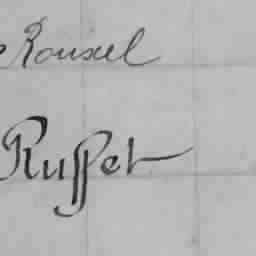 Rousel
Ruffet